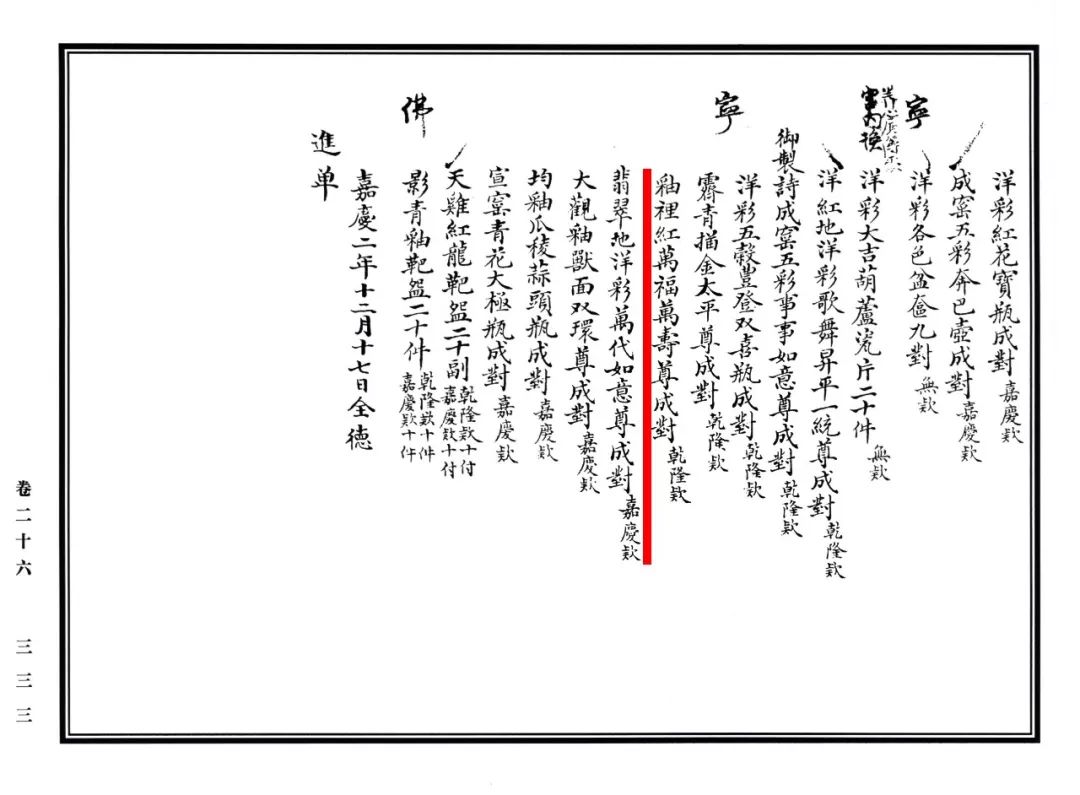 寧
洋彩紅花寶瓶成對嘉慶欵
成窯五彩奔巴壺成對嘉慶欵
洋彩各色盆奩九對無欵
洋彩大吉葫蘆瓷片二十件無欵
洋紅地洋彩歌舞昇平一統尊成對乾隆欵
御製詩成窯五彩事事如意尊成對乾隆欵
寧
洋彩五穀豐登双喜瓶成對乾隆欵
霽青描金太平尊成對乾隆欵
釉裡紅萬福萬壽尊成對乾隆欵
翡翠地洋彩萬代如意尊成對嘉慶欵
大觀釉獸面双環尊成對嘉慶欵
均釉瓜稜蒜頭瓶成對嘉慶欵
宣窯青花大極瓶成對嘉慶欵
天雞紅龍靶盌二十副乾隆欵十付
嘉慶欵十付
佛
影青釉靶盌二十件乾隆欵十件
嘉慶欵十件
嘉慶二年十二月十七日全德
進单
卷二十六
三三三